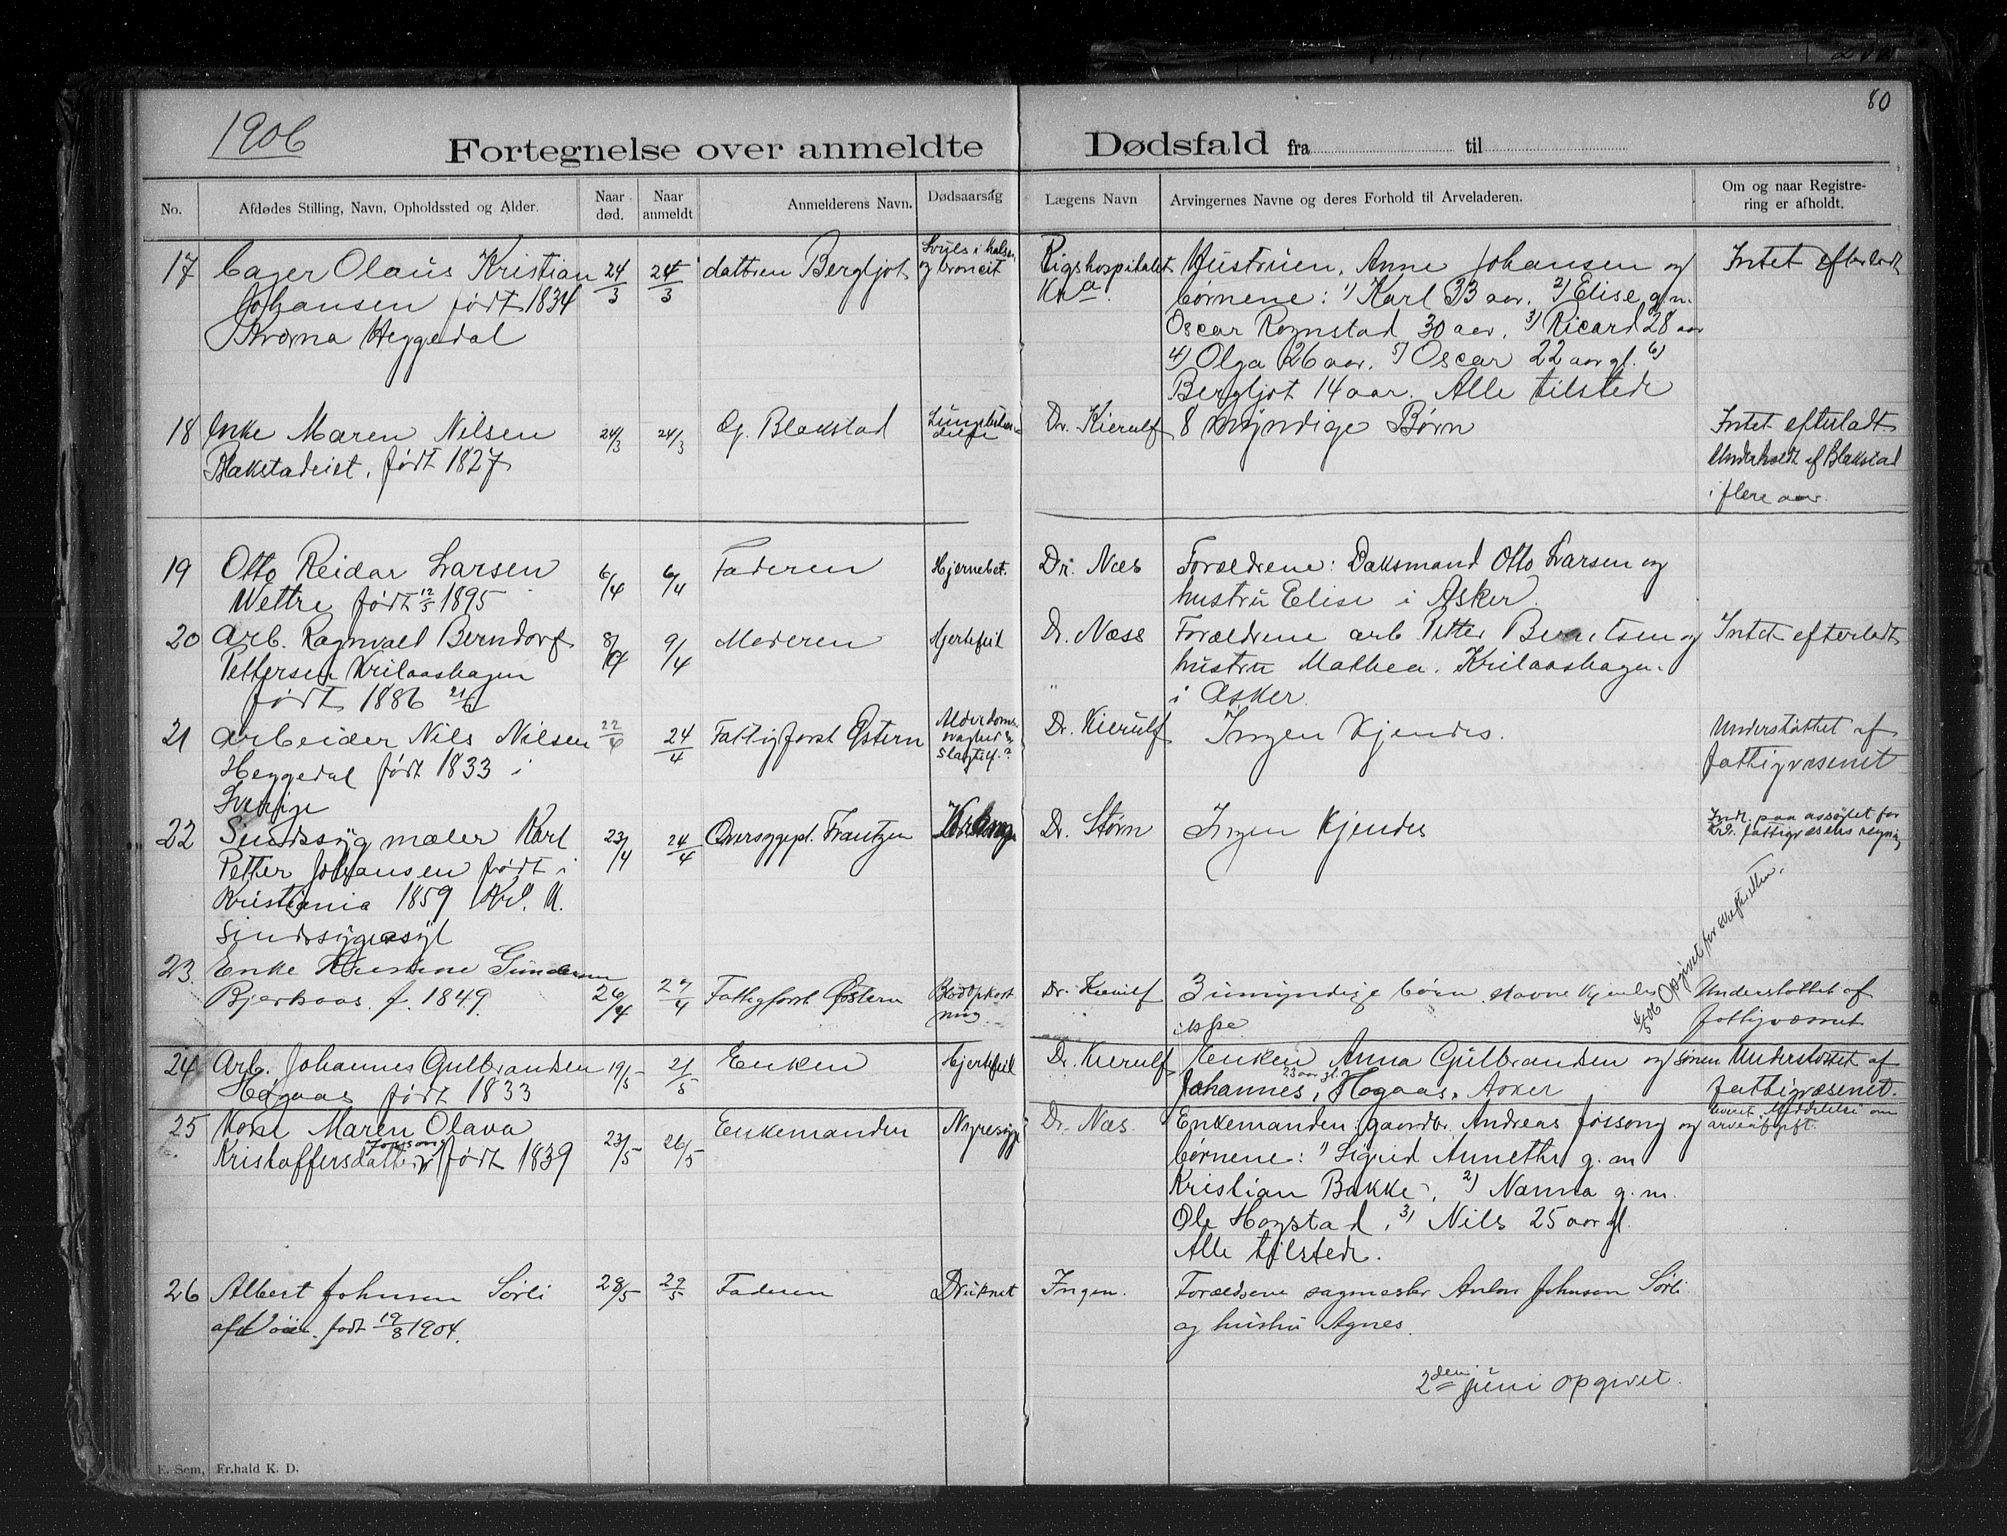 80
1906
Fortegnelse over anmeldte Dødsfald fra til
No. Afdødes Stilling, Navn, Opholdssted og Alder. Naar død. Naar anmeldt Anmelderens Navn. Dødsaarsag Lægens Navn Arvingernes Navne og deres Forhold til Arveladeren. Om og naar Registrering er afholdt.
17 Olaus Kristian 24/3 24/3 dattren Bergljot Svuls i halsen Rigshospitalet Hustruen, Anne Johansen og Intet efterladt
Johansen født 1834 og broncit Kr.a børnene: 1) Karl 33 aar. 2) Elise g.m.
Heggedal Oscar Rognstad 30 aar, 3) Ricard 28 aar
4) Olga 26 aar. 5) Oscar 22 aar gl. 6)
Bergljot 14 aar. Alle tilstede
18 Enke Maren Nilsen 24/3 24/3 G. Blakstad Lungebetændelse Dr. Kierulf 8 myndige Børn Intet efterladt
Blakstadeiet, født 1827 Underholdt af Blakstad
i flere aar.
19 Otto Reidar Larsen 6/4 6/4 Faderen Hjernebet. Dr. Næs Forældrene: Otto Larsen og
Wettre født 12/5 1895 hustru Elise i Asker
20 Arb. Ragnvald Berndorf 8/4 9/4 Moderen Hjertefeil Dr. Næss Forældrene arb. Petter Berntsen og Intet efterladt
Pettersen Krilaashagen hustru Mathea. Krilaashagen.
født 1886 21/6 i Asker.
21 Arbeider Nils Nilsen 22/4 24/4 Fattigforst. Østern Alderdomssvaghed Dr. Kierulf Ingen Kjendes. Understøttet af
Heggedal født 1833 i slagtilf.? fattigvæsenet
Sverige
22 Sindssyg maler Karl 23/4 24/4 Oversygepl. Frantzen Dr. Størn Ingen Kjendes Indl. paa assylet for
Petter Johansen født i Kr. fattigvæsens regning
Kristiania 1859
Sindssygeasyl
Opgivet for skifteretten.
23. Enke Kristine Gundersen
Bjerkaas. f. 1849. 26/4 27/4 Fattigforst Østern Blodopkastning Dr. Kierulf 3 umyndige børn. Navne Kjendes Understøttet af
ikke fattigvæsenet
24 Arb. Johannes Gulbrandsen 19/5 21/5 Enken Hjertefeil Dr. Kierulf Enken Anna Gulbrandsen og sønen Understøttet af
Høgaas født 1833 Johannes, 23 aar gl. Høgaas, Asker fattigvæsenet.
25 Kone Maren Olava 23/5 26/5 Enkemanden Nyresyge Dr. Næs. Enkemanden: gaardbr. Andreas Jossong og Meddelelse om
Kristoffersdatter Jossong født 1839 børnene: 1) Sigrid Annethe g.m. arveafgift.
Kristian Bakke, 2) Nanna g.m.
Ole Hogstad, 3) Nils 25 aar gl.
Alle tilstede.
26 Albert Johnsen Sørli 28/5 29/5 Faderen Druknet Ingen. Forældrene sagmester Anton Johnsen Sørli
født 19/8 1904. og hustru Agnes.
2den juni opgivet.
E. Sem, Fr.hald K. D.